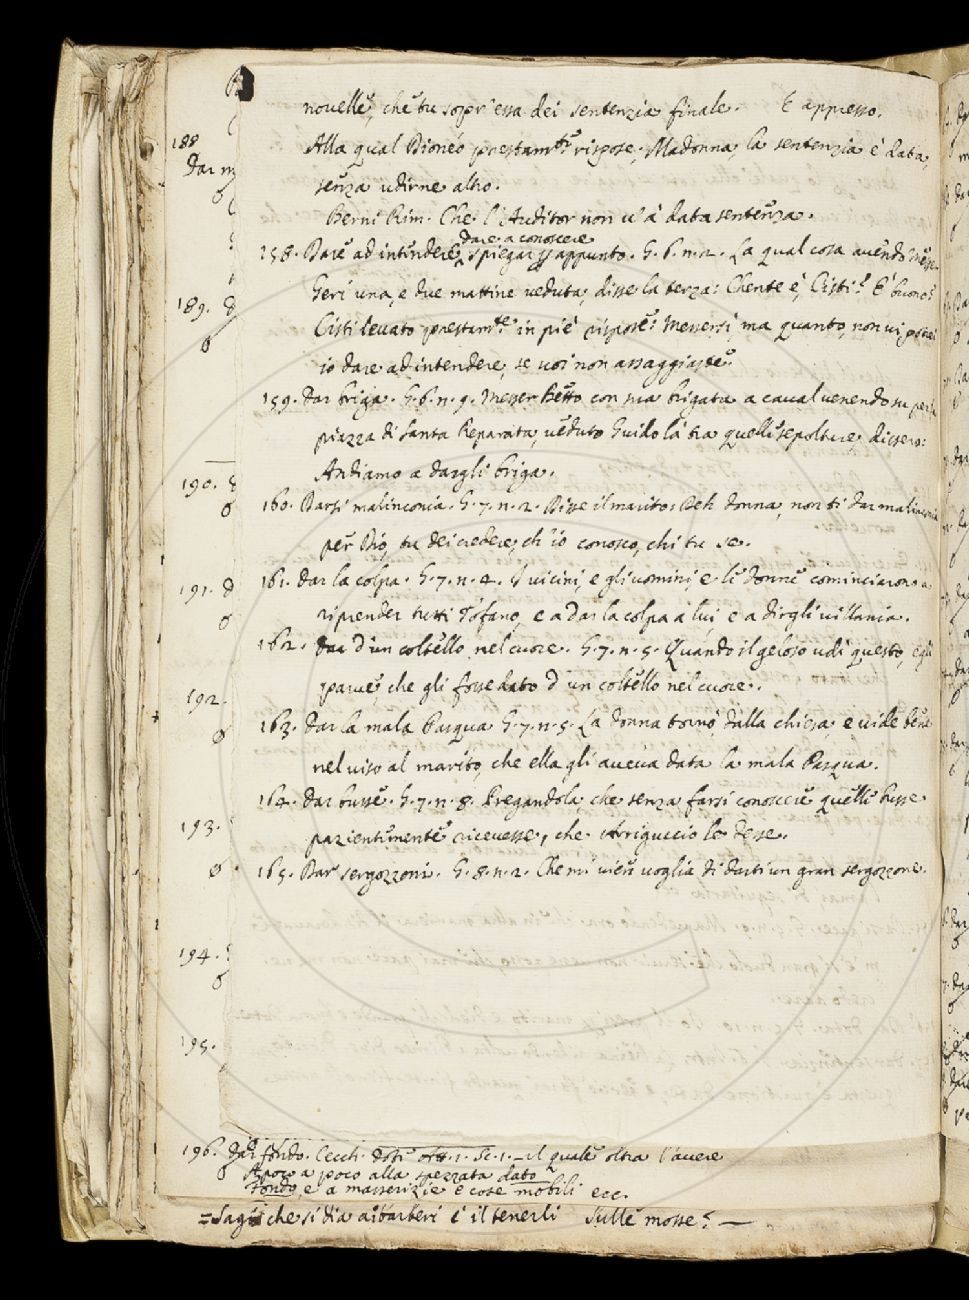 novelle, che tu sopr'essa dei sentenzia finale. E appresso.
Alla qual Dioneo prestam.te rispose, Madonna, la sentenzia è data,
senza udirne altro.
Berni Rim. Che l'Auditor non v'à data sentenza.
dare a conoscere
158. Dare ad intendere, spiegar appunto. G. 6. n. 2. La qual cosa avendo Messer
Geri una, e due mattine veduta, disse la terza: Chente è, Cisti? È buono?
Cisti levato prestam.te in piè rispose: Messersì, ma quanto, non vi potrei
io dare ad intendere, se voi non assaggiaste.
159. Dar briga. G. 6. n. 9. Messer Betto con sua brigata a caval venendo su per la
piazza di Santa Reparata, veduto Guido là tra quelle sepolture, dissero:
Andiamo a dargli briga.
160. Darsi malinconia. G. 7. n. 2. Disse il marito: Deh donna, non ti dar malinconia
per Dio, tu dei credere, ch'io conosco, chi tu se.
161. Dar la colpa. G. 7. n. 4. I vicini, e gli uomini, e le donne cominciarono a
riprender tutti Tofano, e a dar la colpa a lui, e a dirgli villania.
162. Dar d'un coltello nel cuore. G. 7. n. 5. Quando il geloso udì questo, egli
parve, che gli fosse dato d'un coltello nel cuore.
163. Dar la mala Pasqua G. 7. n. 5. La donna tornò dalla chiesa, e vide bene
nel viso al marito, che ella gli aveva data la mala Pasqua.
164. Dar busse. G. 7. n. 8. Pregandola, che senza farsi conoscere quelle busse
pazientemente ricevesse, che Arriguccio le desse.
165. Dar sergozzoni. G. 8. n. 2. Che mi vien voglia di darti un gran sergozzone.
188
Dar m
189. D
190.
191. D
192.
193.
194.
195.
196. Dar fondo. Cecch. Dote att. 1. Sc. 1. - il quale oltra l'avere
A poco a poco alla spezzata dato
Fondo, e a masserizie e cose mobili ecc.
che si dia a i barberi è il tenerli Sulle mosse? —